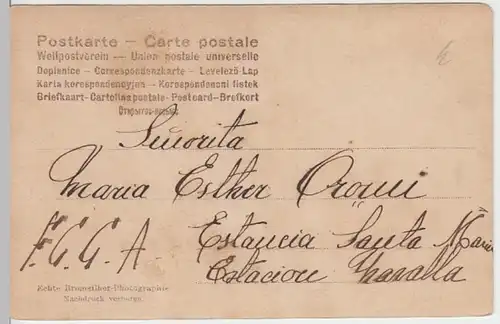 Postkarte – Carte postale
Weltpostverein – Union postale universelle
Dopisnice – Correspondenzkarte – Levelező-Lap
Karta korespondencyjna – Korespondenční lístek
Briefkaart – Cartolina postale – Postcard – Brefkort
Открытое письмо.
Señorita
Maria Esther Oromi
F.C.G.A. Estancia Santa Maria
Estacion Zavalla
Echte Bromsilber-Photographie
Nachdruck verboten.